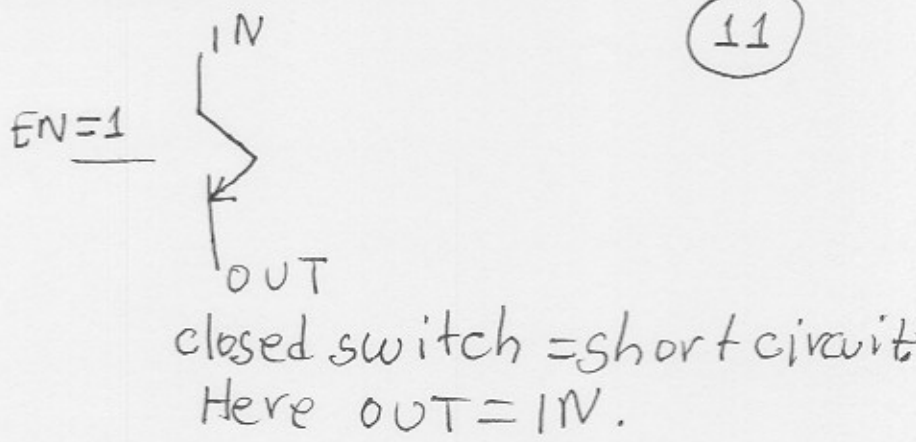 IN
11
EN=1
OUT
closed switch = short circuit.
Here OUT = IN.